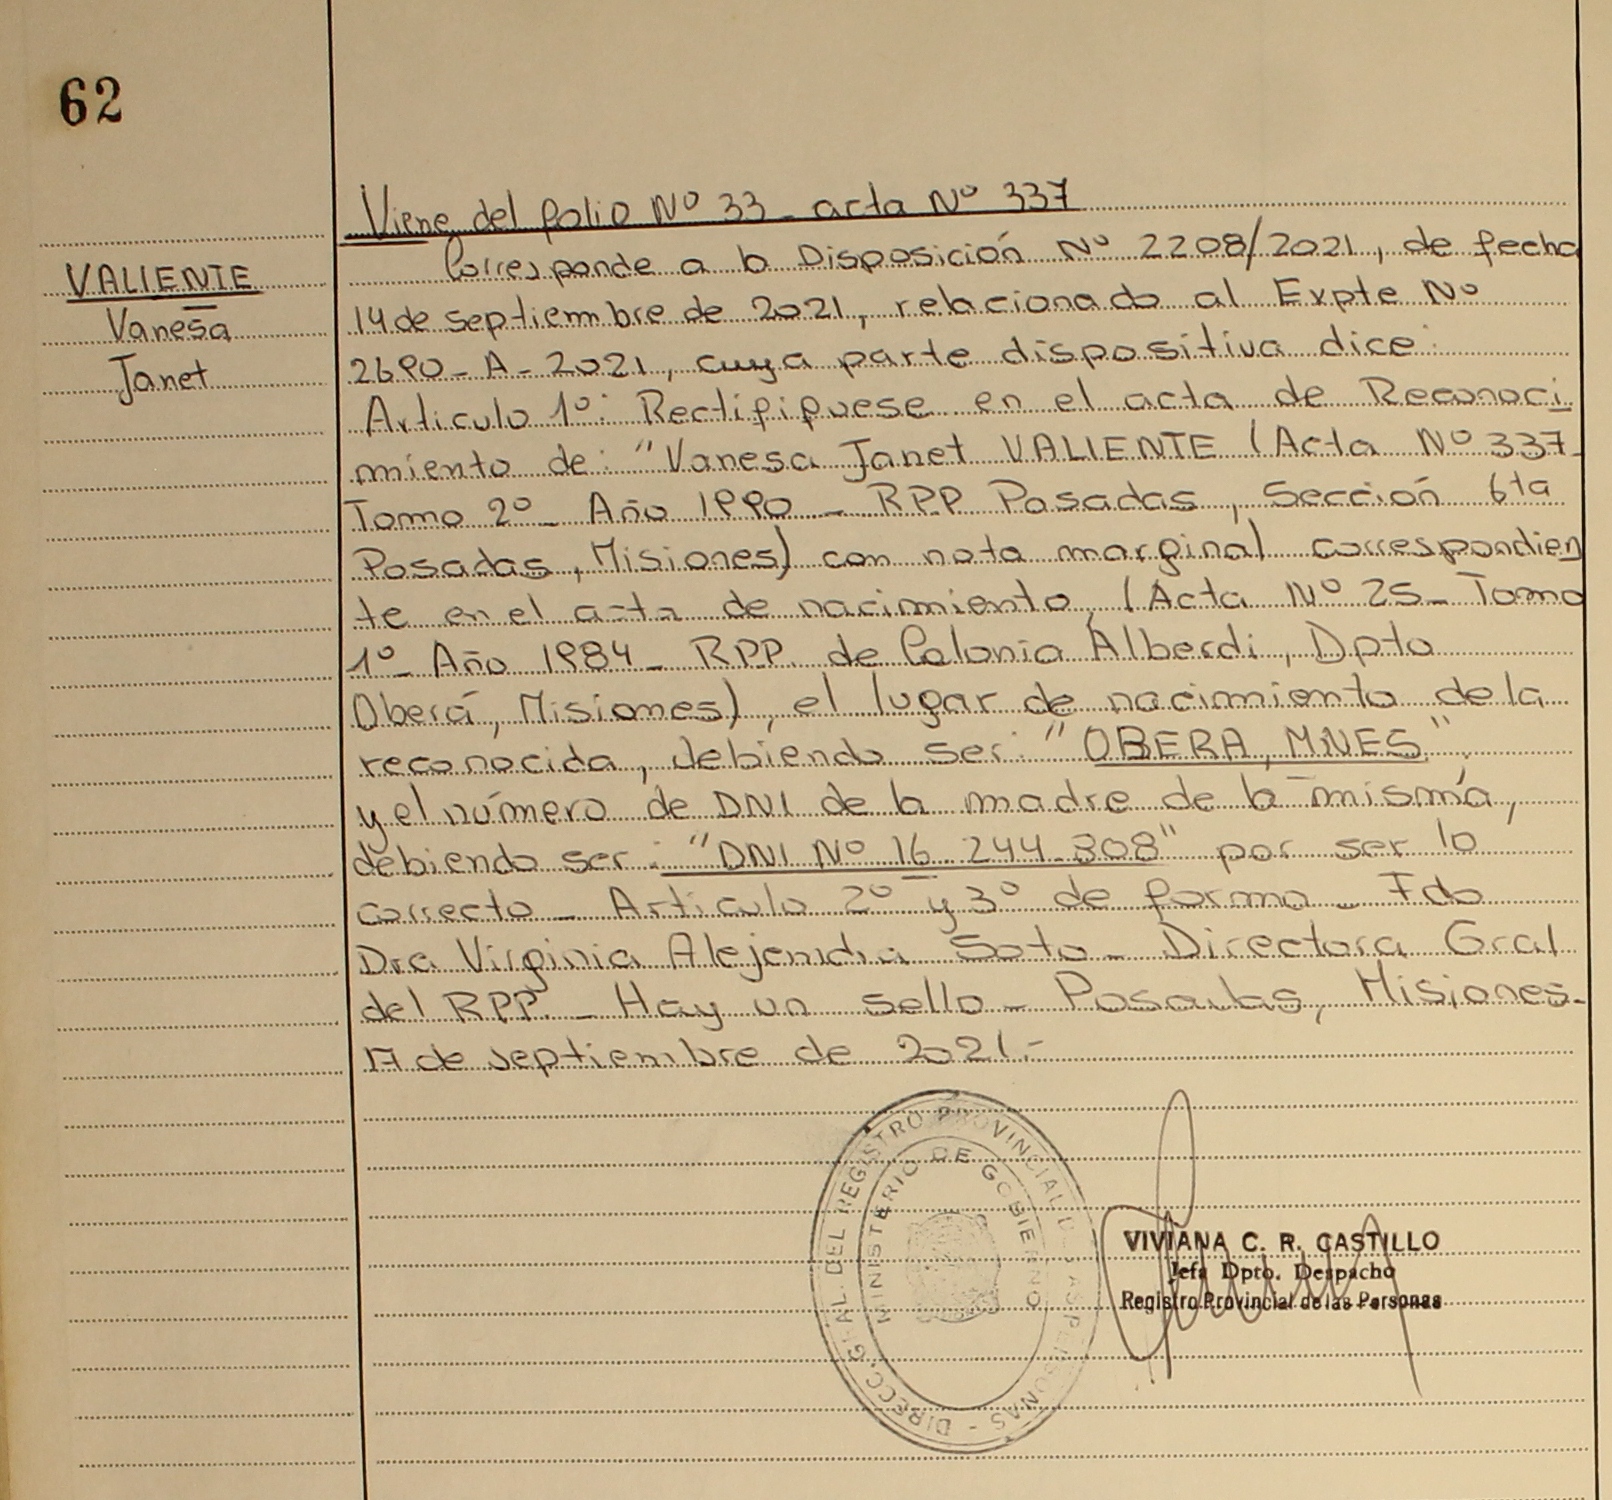 62
VALIENTE
Vanesa
Janet
Viene del folio Nº 33 - acta Nº 337
Corresponde a la Disposición Nº 2208/2021, de fecha
14 de septiembre de 2021, relacionado al Expte Nº
2690 - A - 2021, cuya parte dispositiva dice:
Articulo 1º: Rectifiquese en el acta de Reconoci
miento de: "Vanesa Janet VALIENTE (Acta Nº 337-
Tomo 2º - Año 1990 - RPP Posadas, Sección 6ta
Posadas, Misiones) con nota marginal correspondien
te en el acta de nacimiento, (Acta Nº 25 - Tomo
1º - Año 1984 - RPP. de Colonia Alberdi, Dpto
Oberá, Misiones), el lugar de nacimiento de la
reconocida, debiendo ser: "OBERA, MNES",
y el número de DNI de la madre de la misma,
debiendo ser: "DNI Nº 16.244.308" por ser lo
correcto - Articulo 2º y 3º de forma - Fdo
Dra Virginia Alejandra Soto - Directora Gral
del RPP. - Hay un sello - Posadas, Misiones -
17 de septiembre de 2021.-
DIRECC. GRAL. DEL REGISTRO PROVINCIAL DE LAS PERSONAS -
MINISTERIO DE GOBIERNO
VIVIANA C. R. CASTILLO
Jefa Dpto. Despacho
Registro Provincial de las Personas